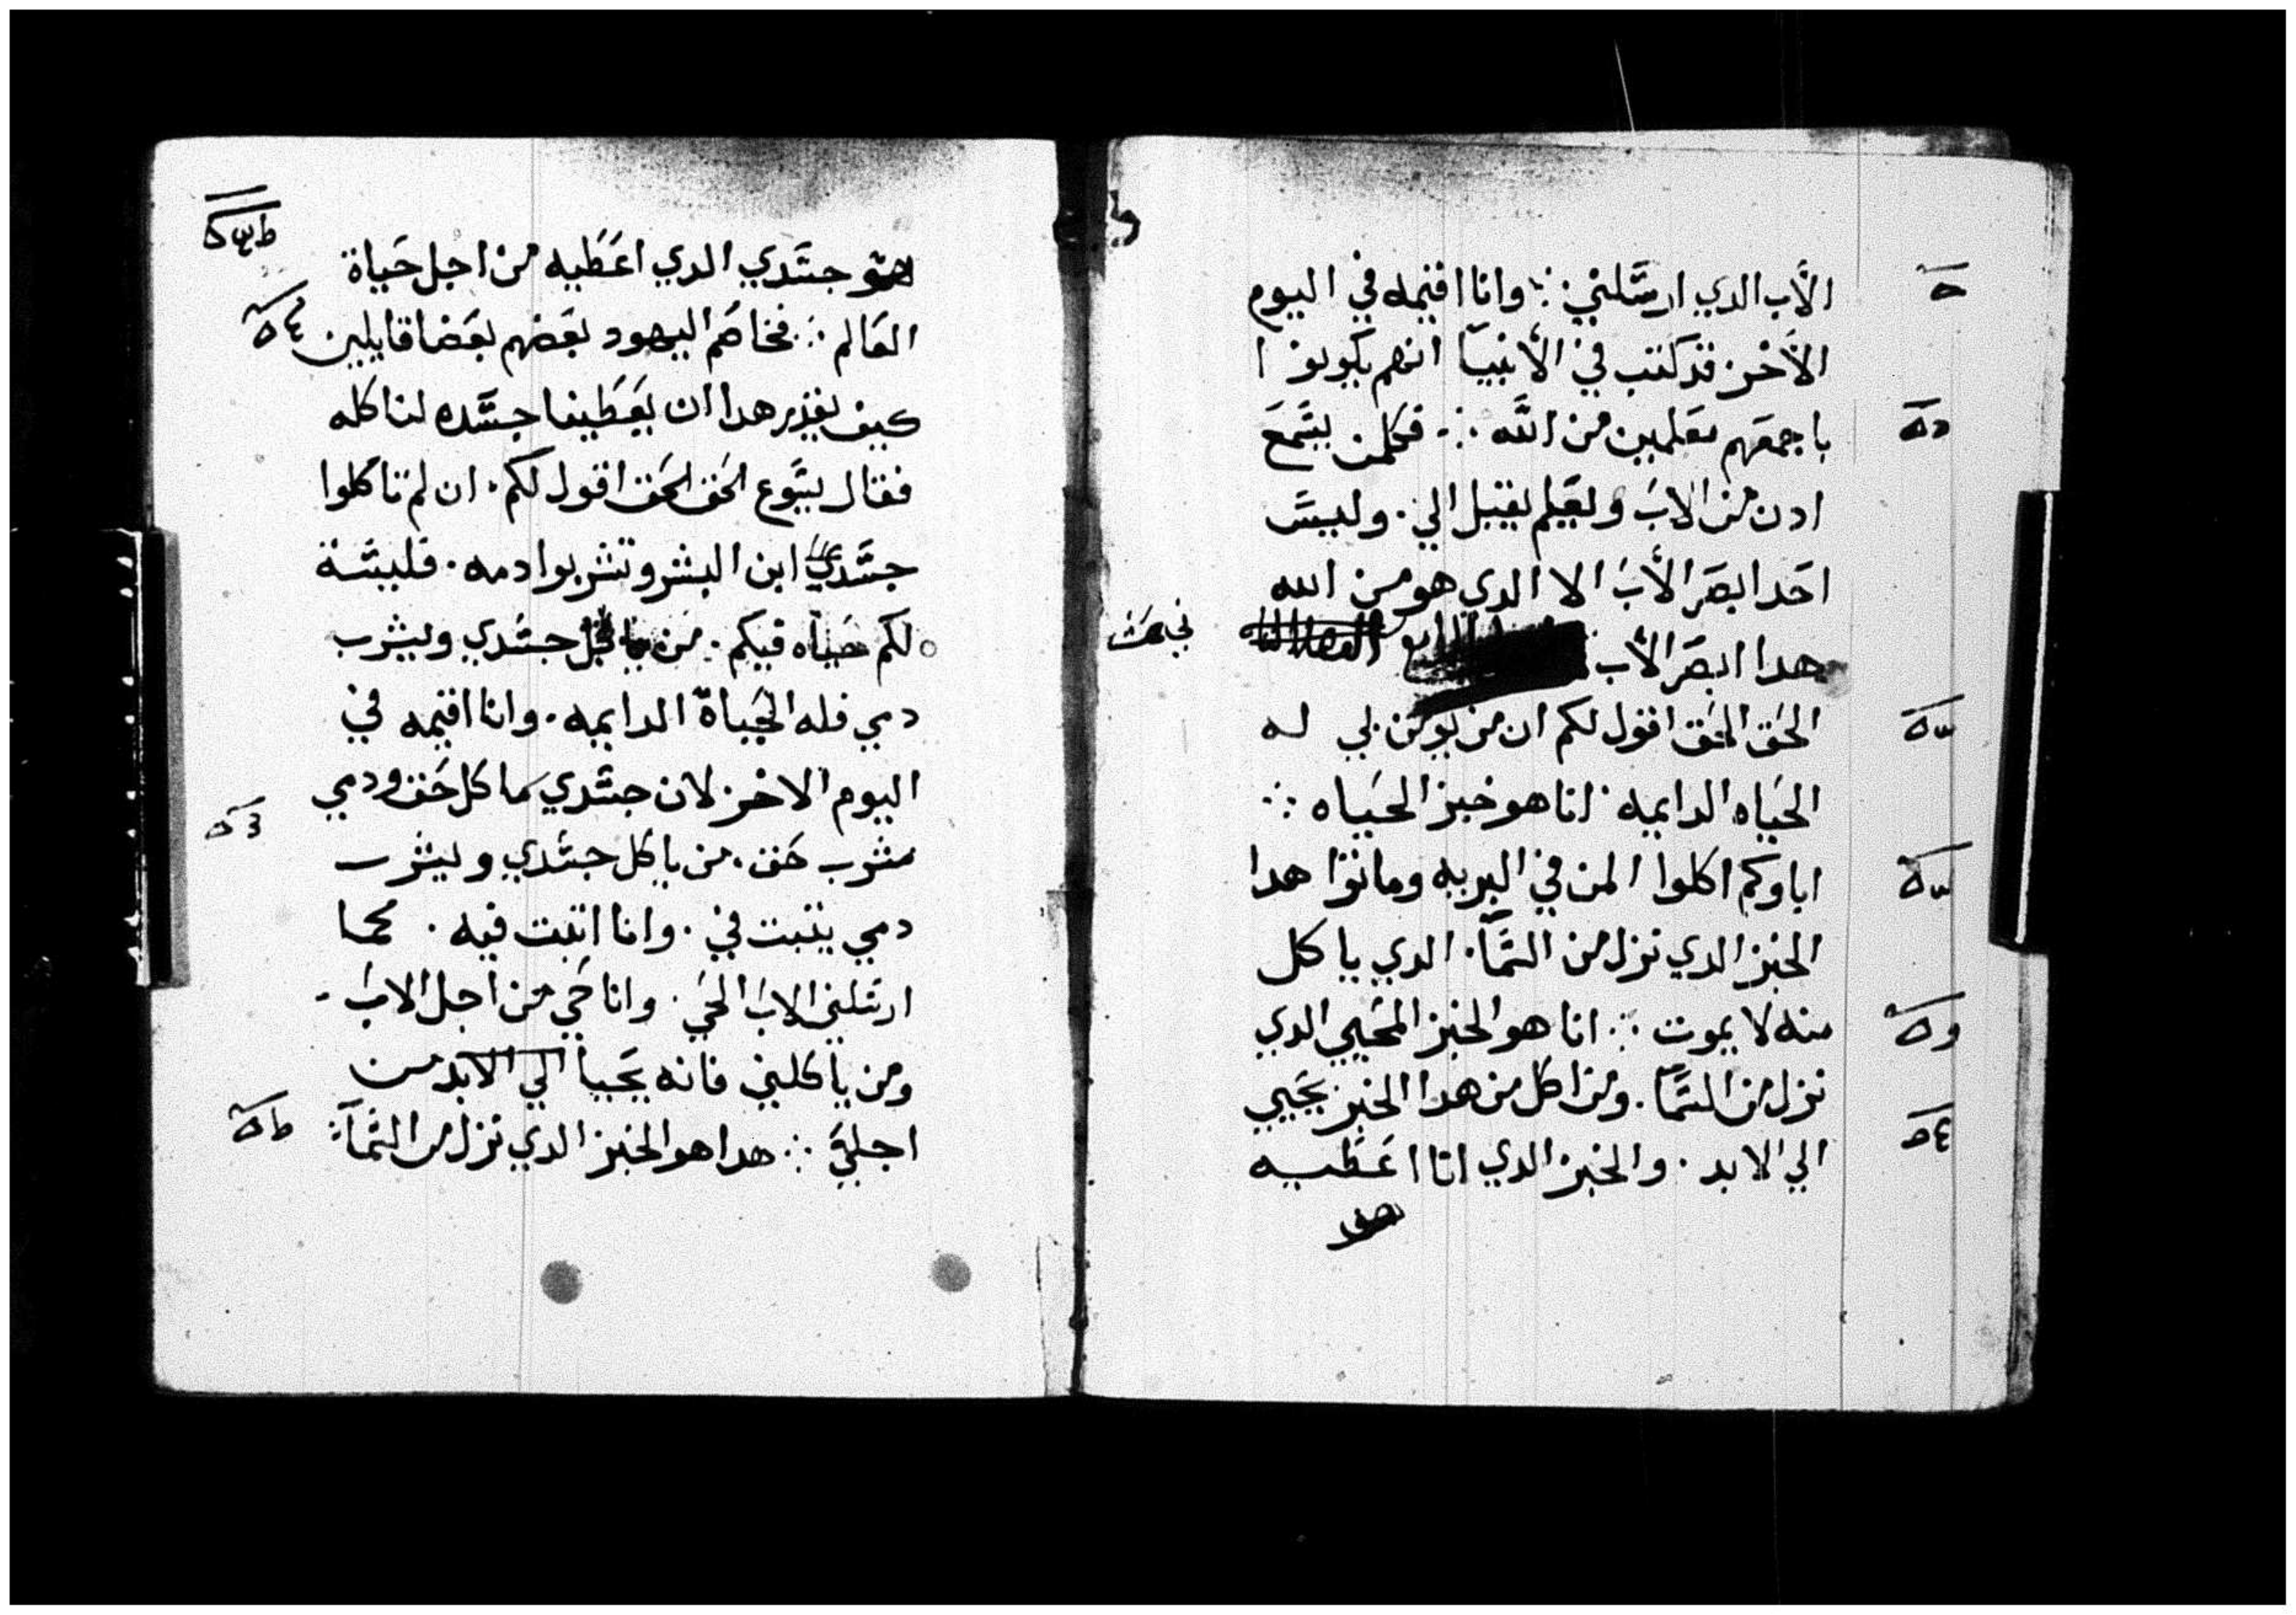 الأب الدي ارسلني ⁘ وانا اقيمه في اليوم
الأخر قد كتب في الأنبيا انهم يكونوا
باجمعهم معلمين من الله ⁘ فكلمن يسمع
ادن من الاب ويعلم يقبل الي. وليس
احد ابصر الأب الا الدي هو من الله
هدا ابصر الأب
الحق الحق اقول لكم ان من يومن بي له
الحياه الدايمه انا هو خبز الحياه ⁘
اباوكم اكلوا المن في البريه وماتوا هدا
الخبز الدي نزل من السما. الدي ياكل
منه لا يموت ⁘ انا هو الخبز المحيي الدي
نزل من السما. ومن اكل من هدا الخبز يحيي
الي الابد. والخبز الدي انا اعطيه
هو
هو جسدي الدي اعطيه من اجل حياة
العالم ⁘ فخاصم اليهود بعضهم بعضا قايلين
كيف يقدر هدا ان يعطينا جسده لناكله
فقال يسوع الحق الحق اقول لكم. ان لم تاكلوا
جسدي ابن البشر وتشربوا دمه. فليسة
لكم حياه فيكم. من ياكل جسدي ويشرب
دمي فله الحياة الدايمه. وانا اقيمه في
اليوم الاخر لان جسدي ماكل حق ودمي
مشرب حق. من ياكل جسدي ويشرب
دمي يتبت في. وانا اتبت فيه. كما
ارسلني الاب الحي. وانا حي من اجل الاب
ومن ياكلني فانه يحيا الي الابد من
اجلي ⁘ هدا هو الخبز الدي نزل من السما